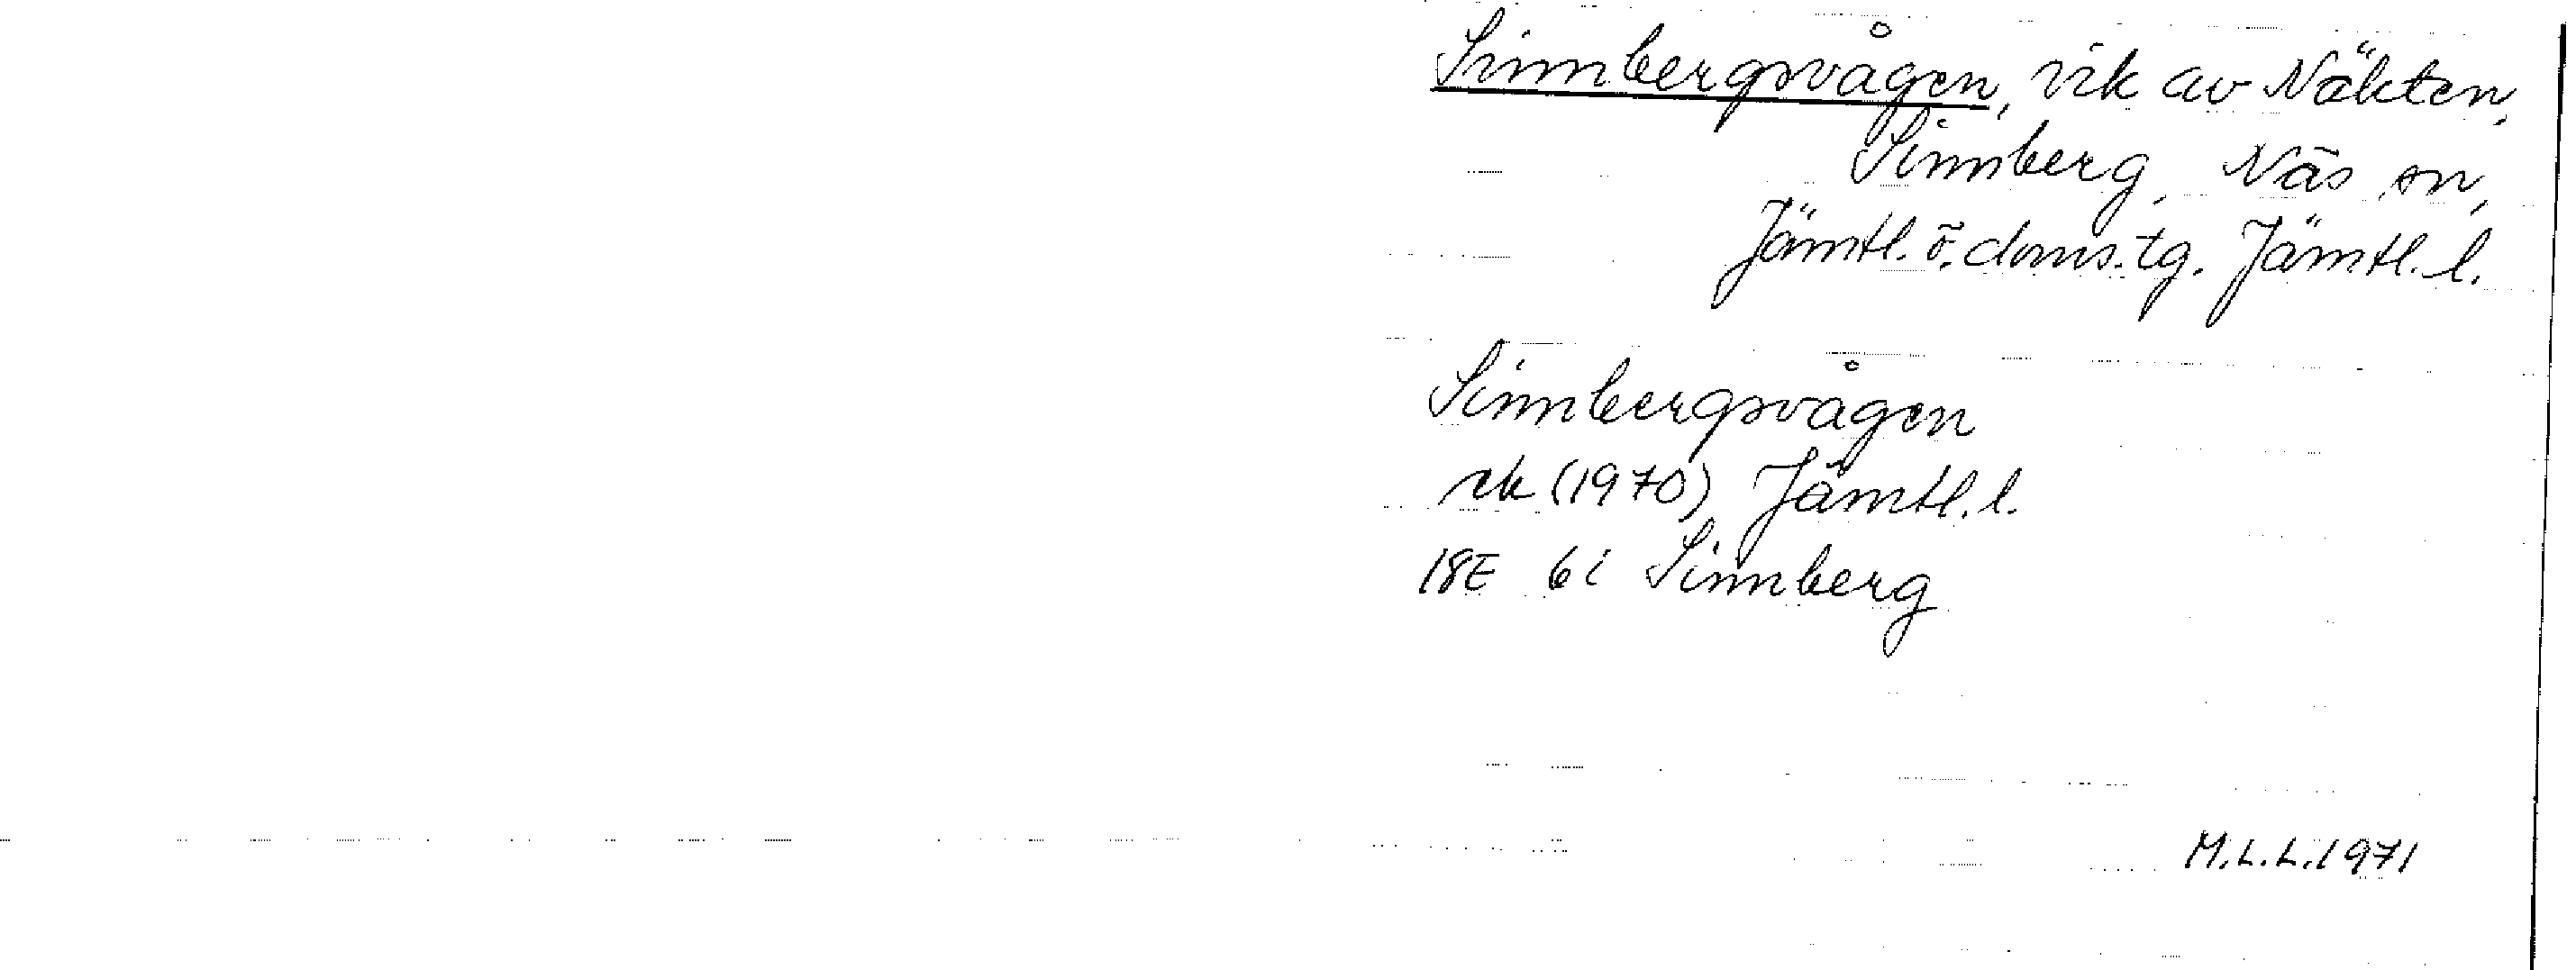 Sinnbergsvågen, vik av Näkten,
Sinnberg, Näs sn,
Jämtl. ö. doms. tg. Jämtl. l.
Sinnbergsvågen
rk (1970) Jämtl. l.
18E 6i Sinnberg
M.L.L. 1971